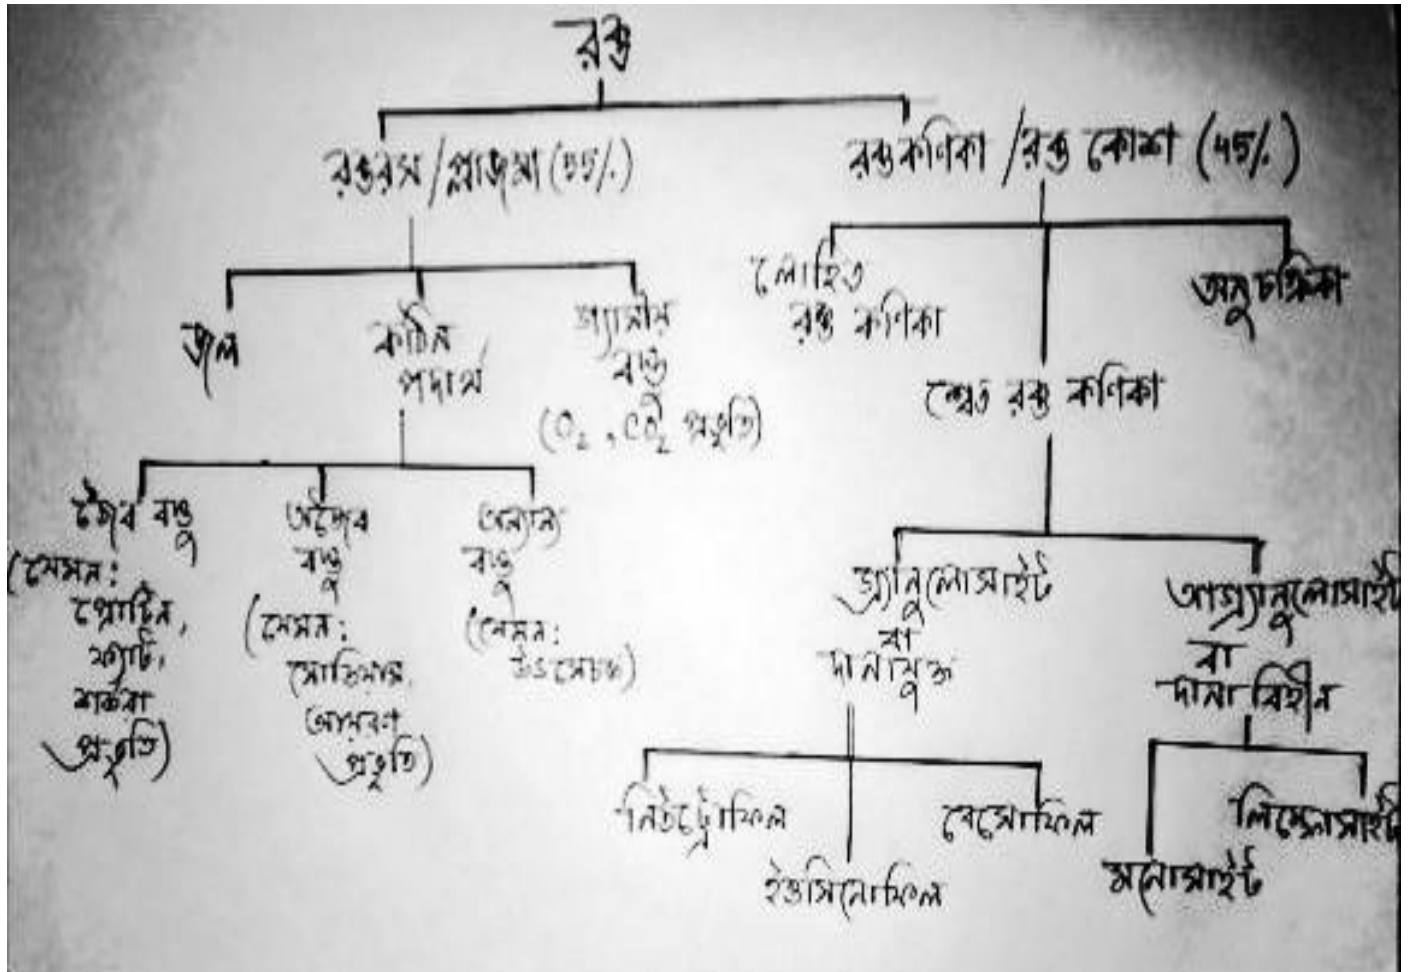 রক্ত
রক্তরস / প্লাজমা (55%)
রক্তকণিকা / রক্ত কোশ (45%)
জল
কঠিন
পদার্থ
গ্যাসীয়
বস্তু
(O₂, CO₂ প্রভৃতি)
লোহিত
রক্ত কণিকা
শ্বেত রক্ত কণিকা
অনুচক্রিকা
জৈব বস্তু
(যেমন:
প্রোটিন,
ফ্যাট,
শর্করা
প্রভৃতি)
অজৈব
বস্তু
(যেমন:
সোডিয়াম,
আয়রণ
প্রভৃতি)
অন্যান্য
বস্তু
(যেমন:
গ্র্যানুলোসাইট
বা
দানাযুক্ত
আগ্র্যানুলোসাইট
বা
দানা বিহীন
নিউট্রোফিল
ইওসিনোফিল
বেসোফিল
মনোসাইট
লিম্ফোসাইট